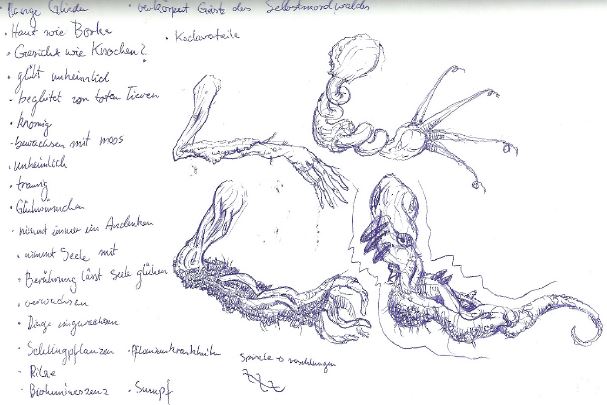 · Lange Glieder
· verkörpert Geister des Selbstmordwaldes
· Haut wie Borke
· Kadaverteile
· Gesicht wie Knochen?
· glüht unheimlich
· begleitet von toten Tieren
· bewachsen mit moos
· unheimlich
· traurig
· Glühwürmchen
· nimmt immer ein Andenken
· nimmt Seele mit
· Berührung lässt Seele glühen
· verwachsen
· Dinge eingewachsen
· Schlingpflanzen
· Pflanzenkrankheiten
Spirale → verschlungen
· Pilze
· Biolumineszenz
· Sumpf